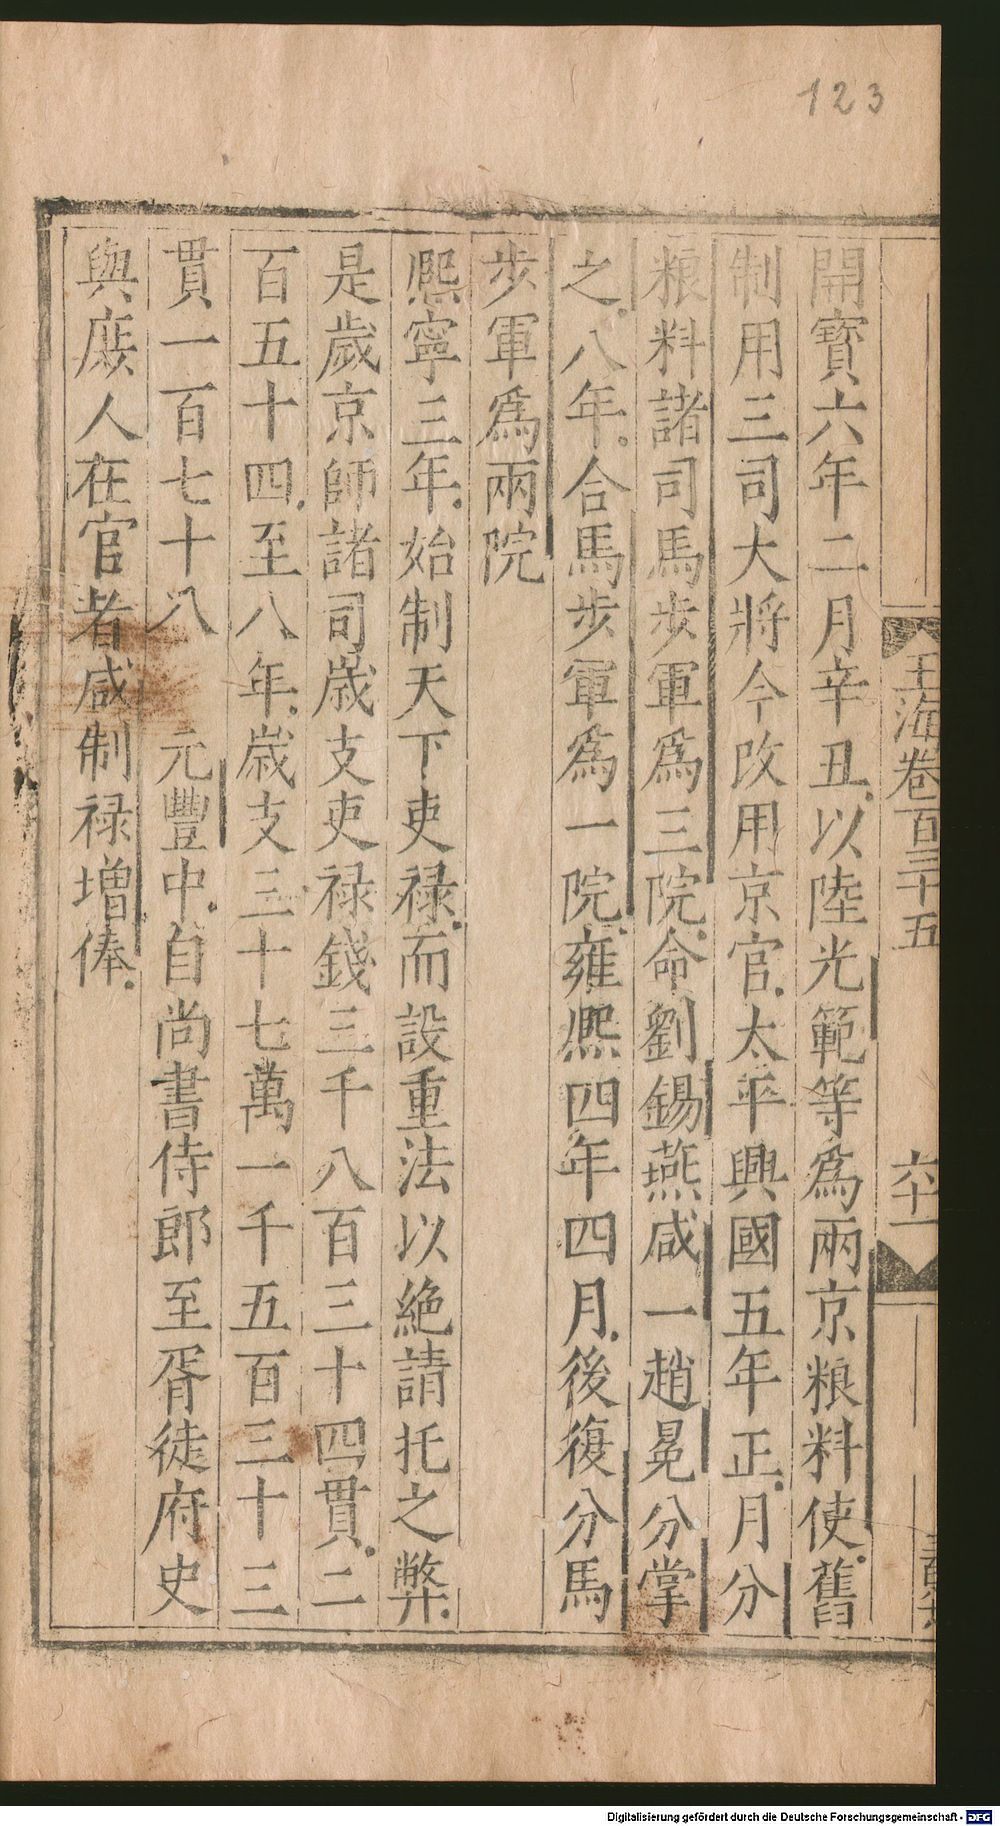 123
玉海卷百三十五
六十一
開寶六年二月辛丑以陸光範等爲兩京粮料使舊
制用三司大將今改用京官太平興國五年正月分
粮料諸司馬步軍爲三院命劉錫燕咸一趙晃分掌
之八年合馬步軍爲一院雍熙四年四月後復分馬
步軍爲兩院
熙寧三年始制天下吏禄而設重法以絶請托之弊
是歲京師諸司歲支吏禄錢三千八百三十四貫二
百五十四至八年歲支三十七萬一千五百三十三
貫一百七十八 元豐中自尚書侍郎至胥徒府史
與庶人在官者咸制禄增俸
Digitalisierung gefördert durch die Deutsche Forschungsgemeinschaft - DFG